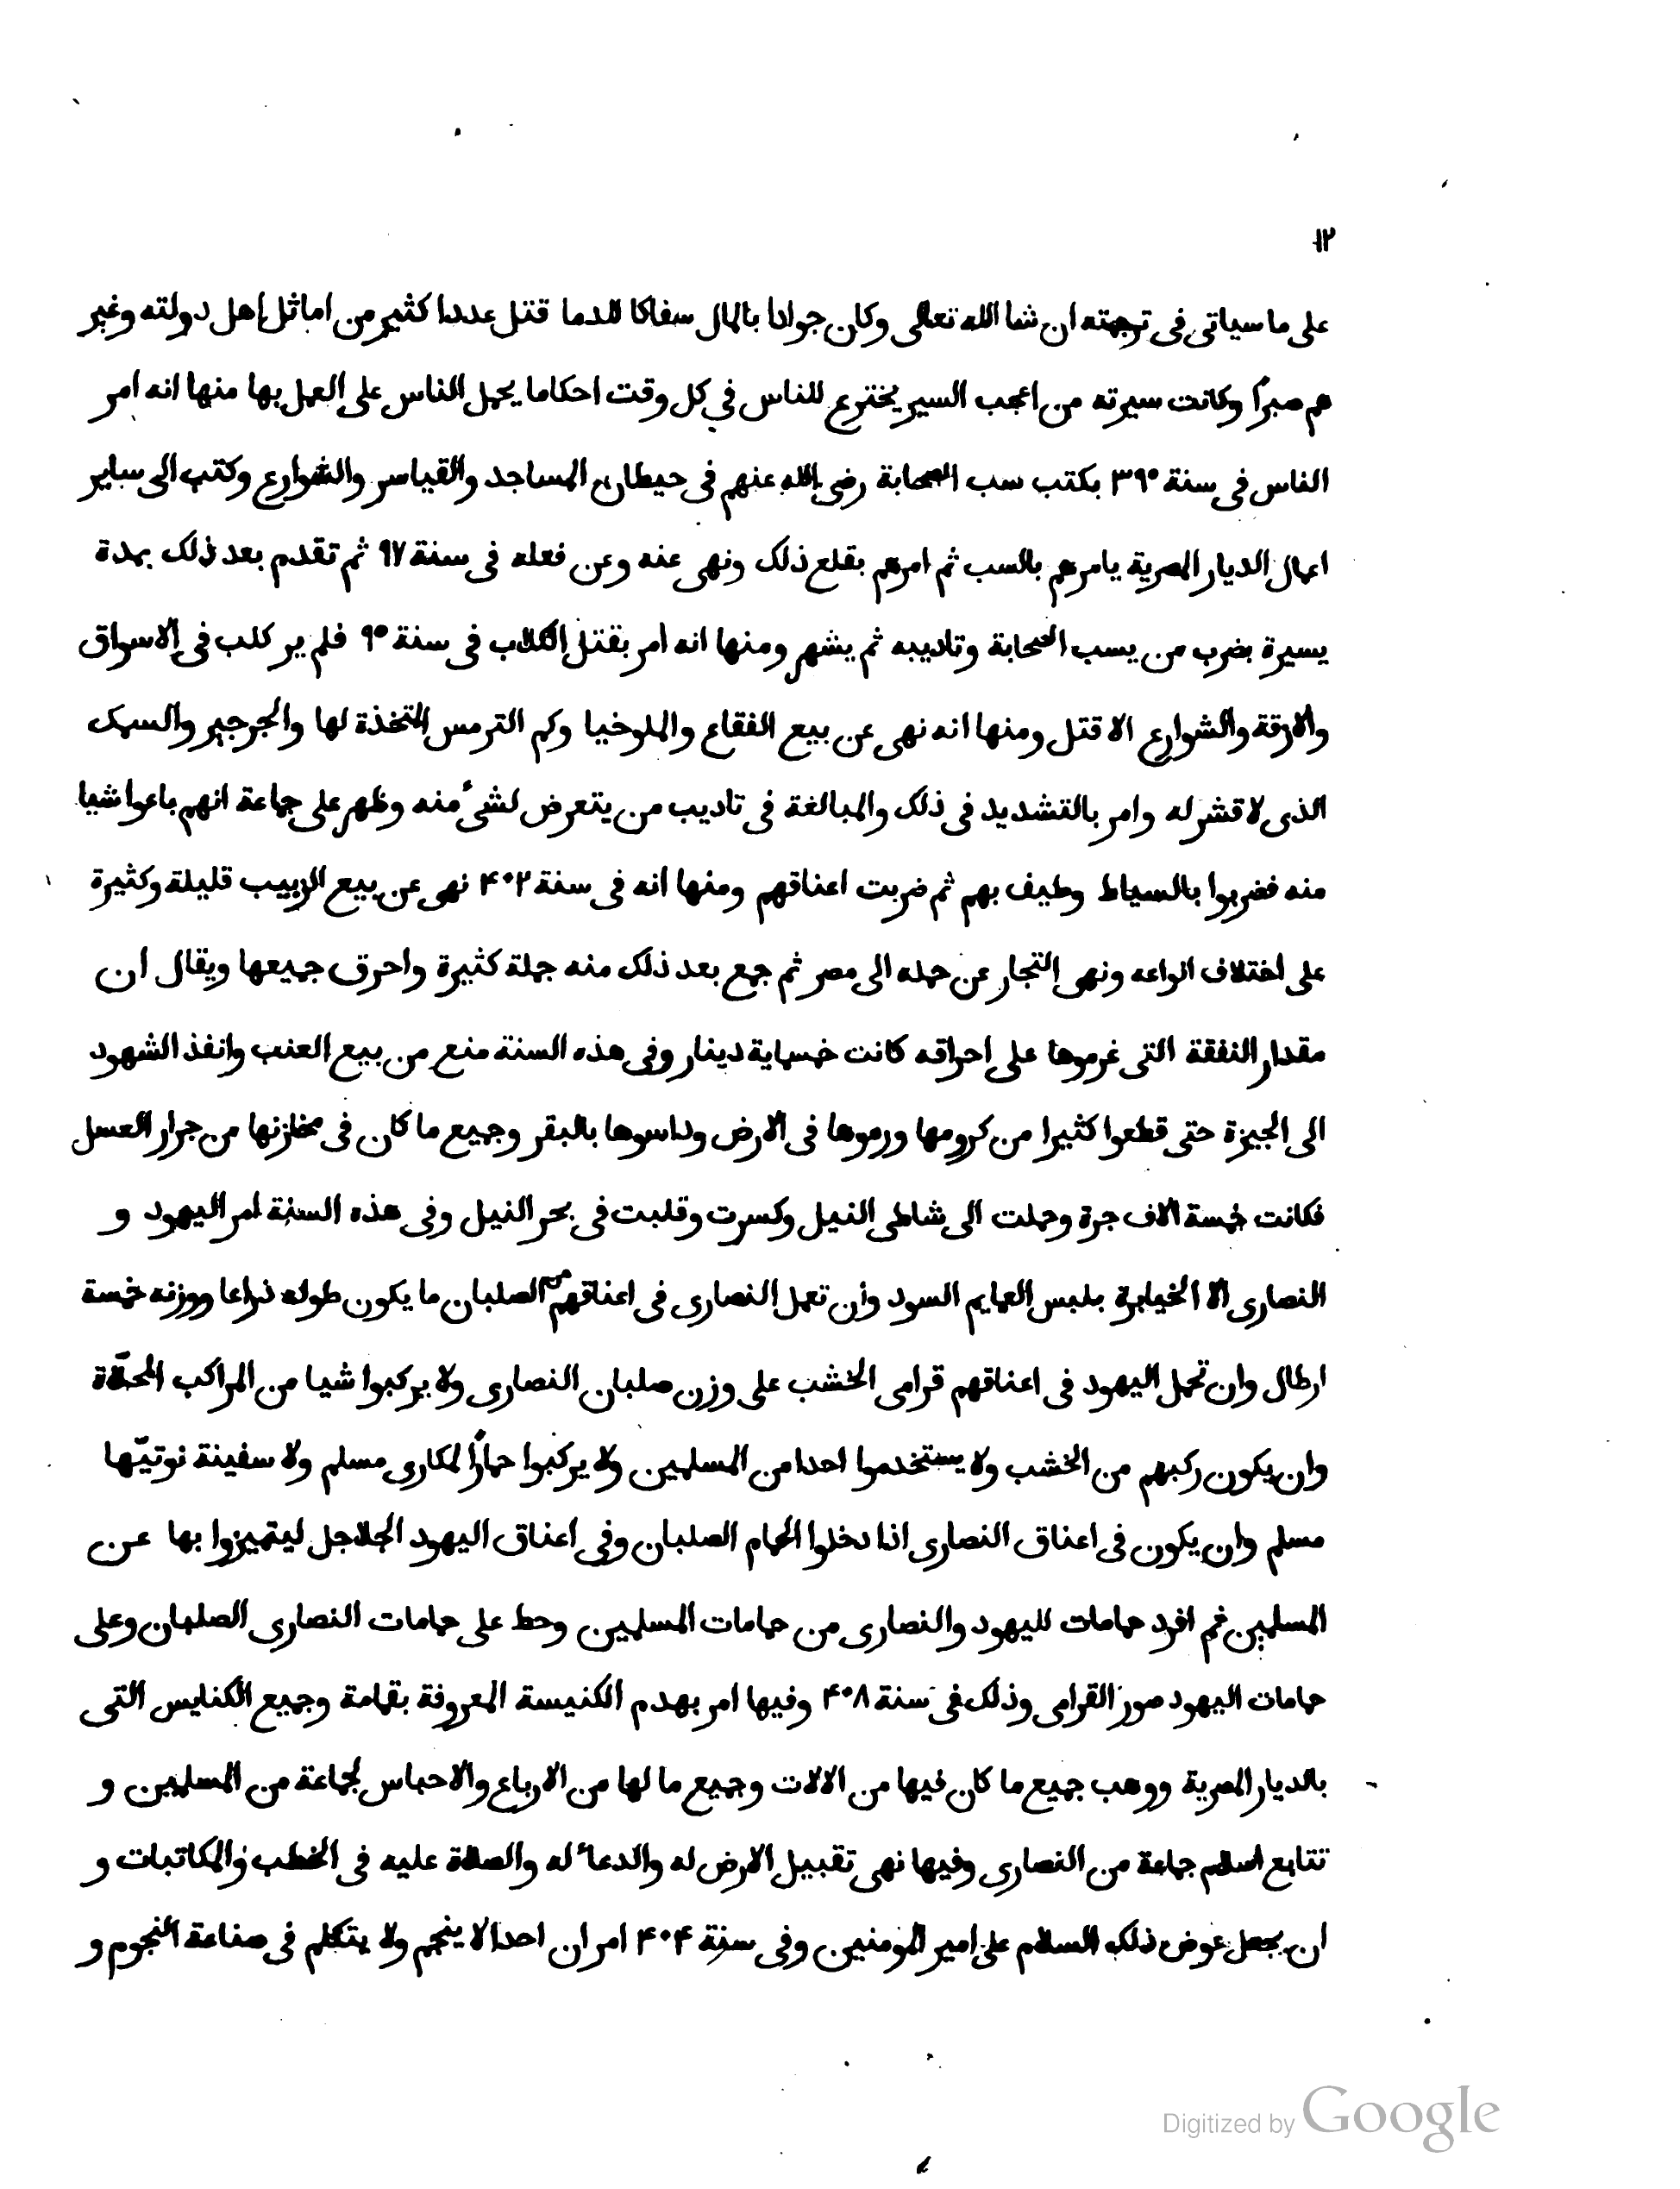 ١٢
على ما سياتى فى ترجمته ان شا الله تعالى وكان جوادا بالمال سفاكا للدما قتل عددا كثير من اماثل اهل دولته وغير
هم صبرًا وكانت سيرته من اعجب السير يخترع للناس في كل وقت احكاما يحمل الناس على العمل بها منها انه امر
الناس فى سنة ٣٩٥ بكتب سب الصحابة رضى الله عنهم فى حيطان المساجد والقياسر والشوارع وكتب الى ساير
اعمال الديار المصرية يامرهم بالسب ثم امرهم بقلع ذلك ونهى عنه وعن فعله فى سنة ٩٧ ثم تقدم بعد ذلك بمدة
يسيرة بضرب من يسب الصحابة وتاديبه ثم يشهر ومنها انه امر بقتل الكلاب فى سنة ٩٥ فلم ير كلب فى الاسواق
والازقة والشوارع الا قتل ومنها انه نهى عن بيع الفقاع والملوخيا وكم الترمس المتخذة لها والجرجير والسمك
الذى لا قشر له وامر بالتشديد فى ذلك والمبالغة فى تاديب من يتعرض لشىء منه وظهر على جماعة انهم باعوا شيا
منه فضربوا بالسياط وطيف بهم ثم ضربت اعناقهم ومنها انه فى سنة ٤٠٢ نهى عن بيع الزبيب قليلة وكثيرة
على اختلاف انواعه ونهى التجار عن حمله الى مصر ثم جمع بعد ذلك منه جملة كثيرة واحرق جميعها ويقال ان
مقدار النفقة التى غرموها على احراقه كانت خمسماية دينار وفى هذه السنة منع من بيع العنب وانفذ الشهود
الى الجيزة حتى قطعوا كثيرا من كرومها ورموها فى الارض وداسوها بالبقر وجميع ما كان فى مخازنها من جرار العسل
فكانت خمسة الاف جرة وحملت الى شاطى النيل وكسرت وقلبت فى بحر النيل وفى هذه السنة امر اليهود و
النصارى الا الخيابرة بلبس العمايم السود وان تعمل النصارى فى اعناقهم من الصلبان ما يكون طوله ذراعا ووزنه خمسة
ارطال وان تحمل اليهود فى اعناقهم قرامى الخشب على وزن صلبان النصارى ولا يركبوا شيا من المراكب المحلّاة
وان يكون ركبهم من الخشب ولا يستخدموا احدا من المسلمين ولا يركبوا حمارًا لمكارى مسلم ولا سفينة نوتيّها
مسلم وان يكون فى اعناق النصارى اذا دخلوا الحمام الصلبان وفى اعناق اليهود الجلاجل ليتميزوا بها عن
المسلمين ثم افرد حمامات لليهود والنصارى من حمامات المسلمين وحط على حمامات النصارى الصلبان وعلى
حمامات اليهود صور القرامى وذلك فى سنة ٤٠٨ وفيها امر بهدم الكنيسة المعروفة بقمامة وجميع الكنايس التى
بالديار المصرية ووهب جميع ما كان فيها من الالات وجميع ما لها من الارباع والاحباس لجماعة من المسلمين و
تتابع اسلام جماعة من النصارى وفيها نهى تقبيل الارض له والدعاء له والصلاة عليه فى الخطب والمكاتبات و
ان يجعل عوض ذلك السلام على امير المومنين وفى سنة ٤٠٤ امر ان احدا لا ينجم ولا يتكلم فى صناعة النجوم و
Digitized by Google